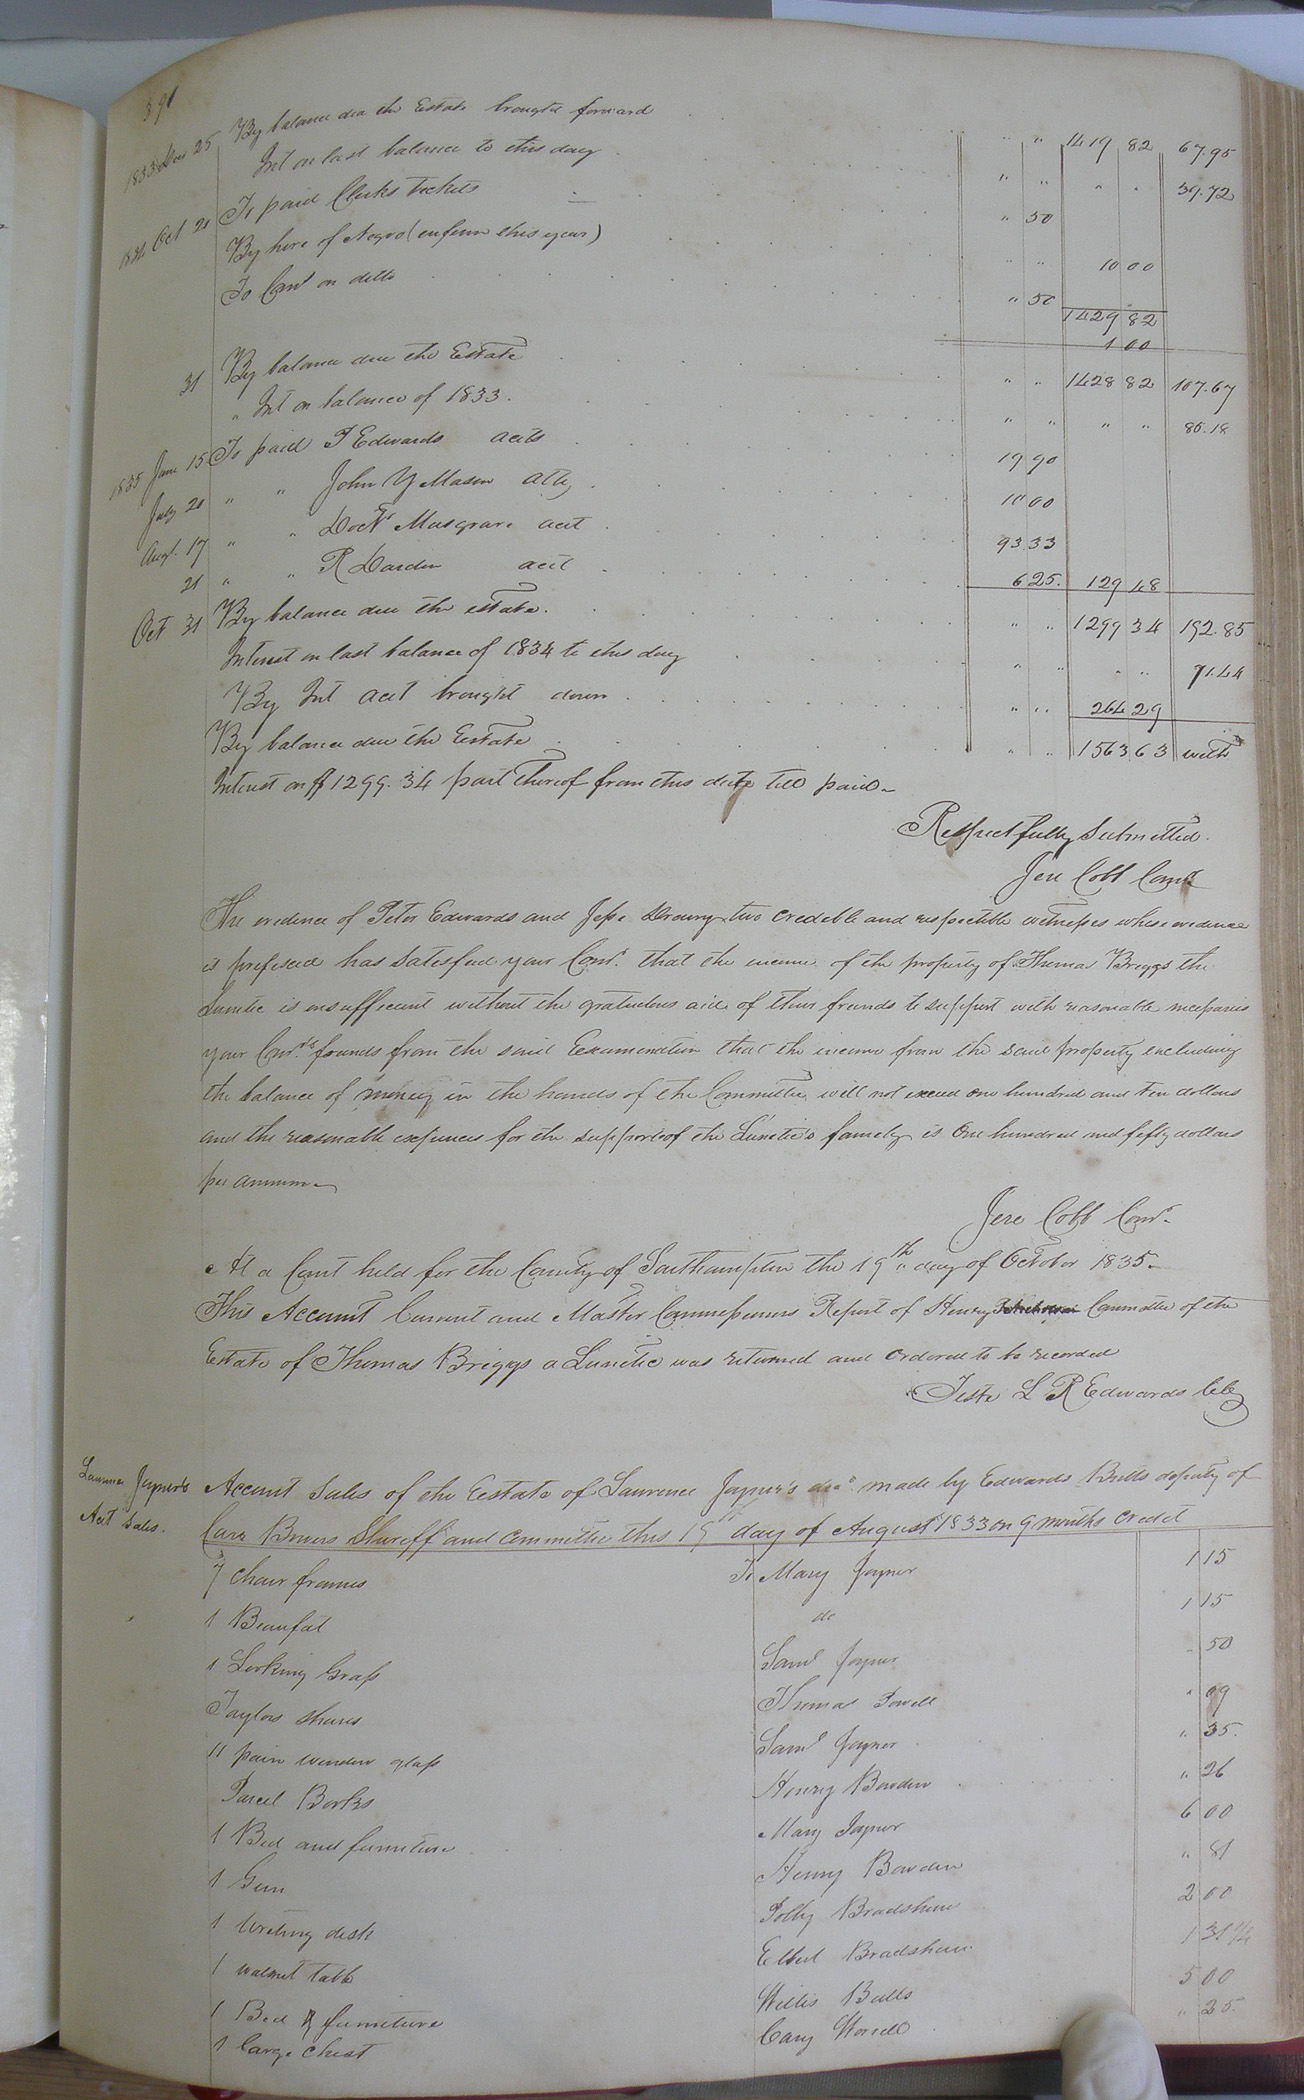 391
1833 Dec 25 By balance due the Estate brought forward " " 1419 82 67.95
Int on last balance to this day " " " " 39.72
1834 Oct 20 To paid Clerks tickets " 50
By hire of Negro (infirm this year) " " 10 00
To Coms on ditto " 50
1429 82
1 00
31 By balance due the Estate " " 1428 82 107.67
" Int on balance of 1833. " " " " 85.18
1835 Jany 15 To paid P Edwards acct 19 90
July 20 " " John Y Mason atty 10 00
Augt. 17 " " Doctr Musgrave acct 93.33
21 " " R Darden acct 6 25. 129 48
Oct 31 By balance due the estate. " " 1299 34 192.85
Interest on last balance of 1834 to this day " " " " 71.44
By Int acct brought down " " 264 29
By balance due the Estate " " 1563 63 with
Interest on $1299.34 part thereof from this date till paid
Respectfully Submitted.
Jere Cobb Comr
The evidence of Peter Edwards and Jesse Drewry two credeble and respectible witnesses whose evidence
is prefixed has Satisfied your Comr. that the income of the property of Thomas Briggs the
Lunitic is insufficient without the gratuitous aid of their friends to support with reasonable necessaries
your Comr. founds from the said Examination that the income from the said property excluding
the balance of money in the hands of the Committee will not exceed one hundred and ten dollars
and the reasonable expences for the support of the Lunetic's family is One hundred and fifty dollars
per annum
Jere Cobb Comr.
At a Court held for the County of Southampton the 19th day of October 1835.
This Account Current and Master Commissioners Report of Henry Committee of the
Estate of Thomas Briggs a Lunetic was returned and ordered to be recorded
Teste L R Edwards Clk
Lawrence Joyner's
Act Sales.
Account Sales of the Eestate of Lawrence Joyner's decd. made by Edwards Butts deputy of
Carr Bowers Sheriff and Committee this 19th day of August 1833 on 9 months credit
7 Chair frames To Mary Joyner 1 15
1 Beaufat do 1 15
1 Looking Glass Saml Joyner " 50
Taylors Shears Thomas Powell " 09
11 pain window glass Saml Joyner " 35.
Parcel Books Henry Bowden " 26
1 Bed and furniture Mary Joyner 6 00
1 Gun Henry Bowden " 81
1 Writing desk Polly Bradshaw 2 00
1 walnut table Elbert Bradshaw 1 31 1/4
1 Bed & furniture Willis Butts 5 00
1 large Chest Cary Worrell " 25.